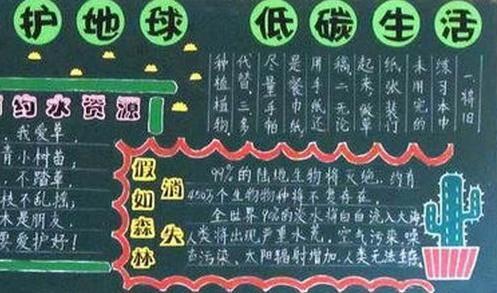 护地球 低碳生活
一.将旧
练习本中
未用完的
纸张装订
起来,做草
稿.二.无论
用手纸还
是餐巾纸
尽量手帕
代替.三.多
种植植物.
约水资源
我爱草,
青小树苗,
不踏草,
枝不乱摇,
木是朋友,
要爱护好!
假如森林
消失
99%的陆地生物将灭绝.约有
450万个生物物种将不复存在.
全世界90%的淡水将白白流入大海,
人类将出现严重水荒,空气污染,噪
音污染、太阳辐射增加,人类无法生存.